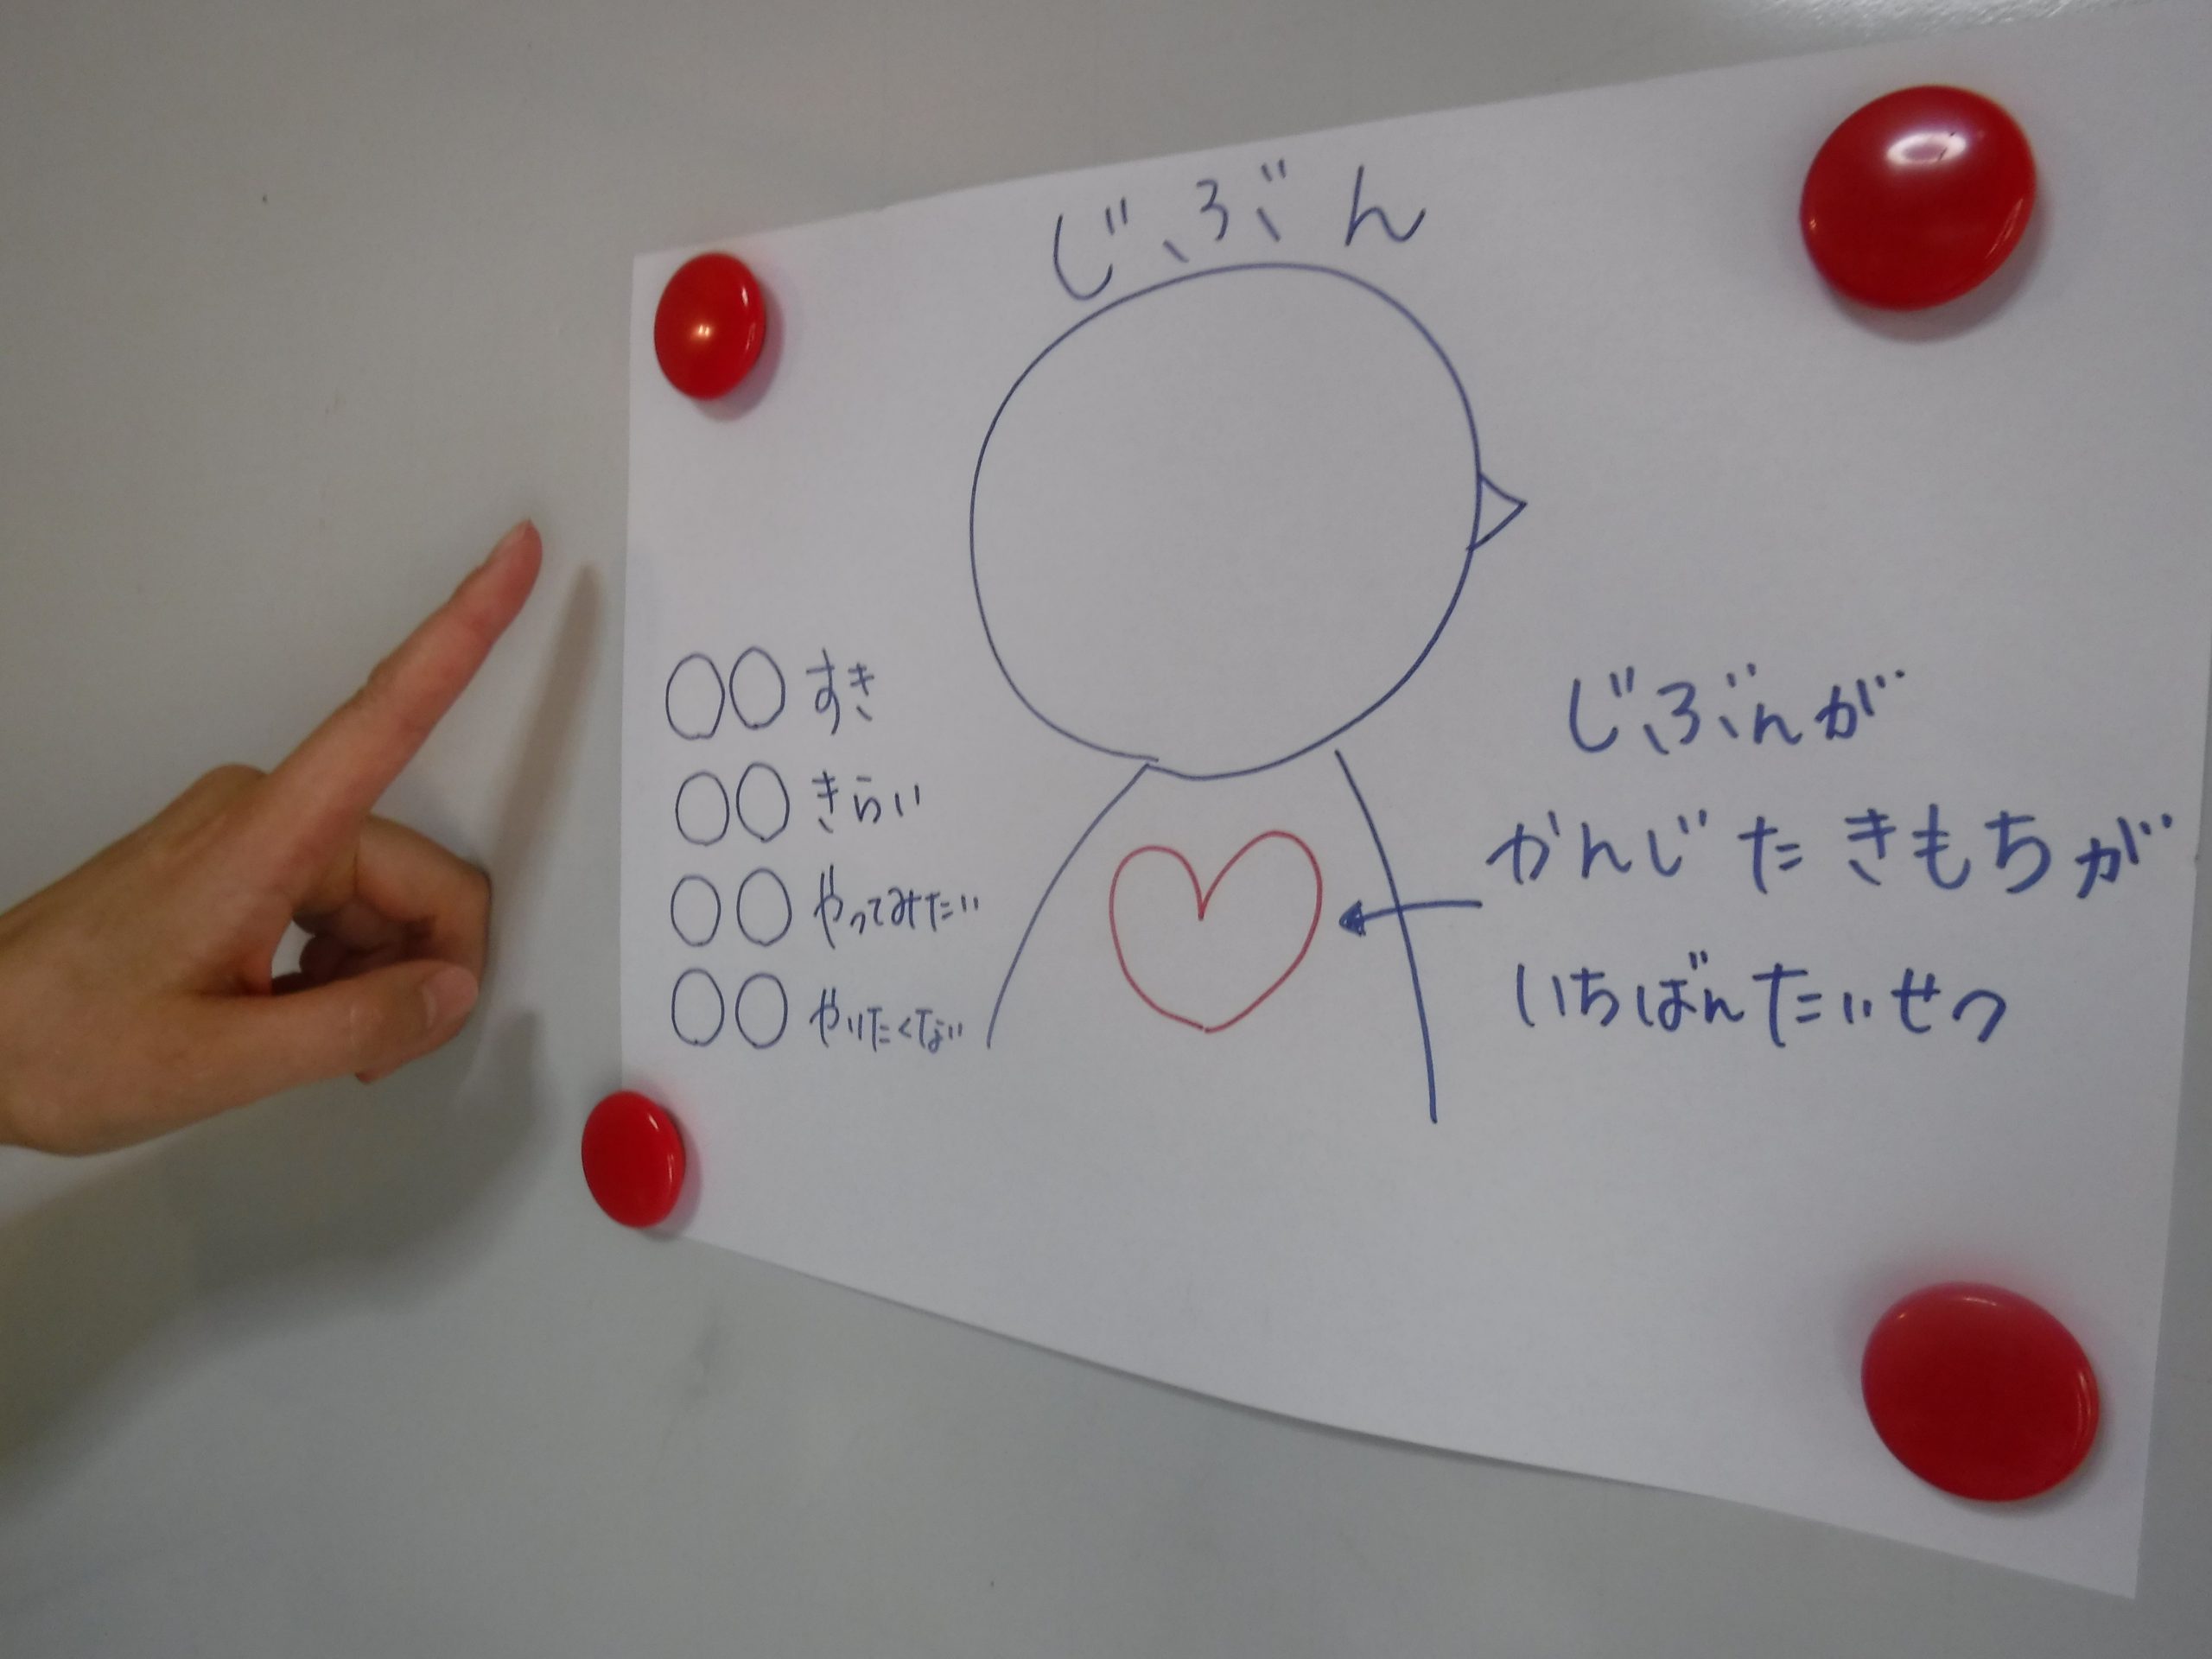 じぶん
○○すき
○○きらい
○○やってみたい
○○やりたくない
じぶんが
かんじたきもちが
いちばんたいせつ